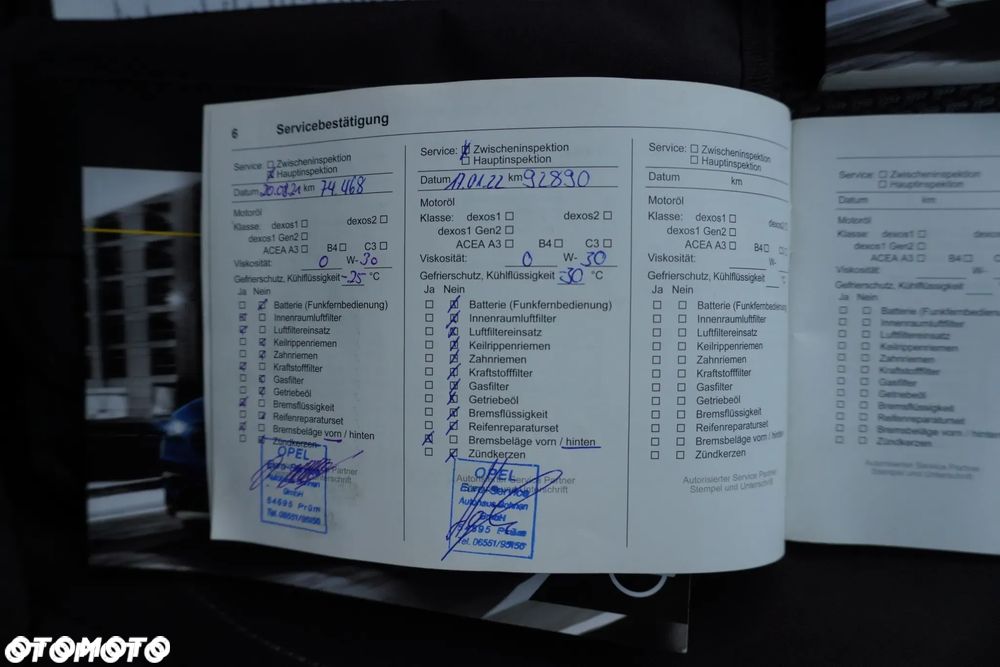 6 Servicebestätigung
Service: Zwischeninspektion
Hauptinspektion
Datum 20.08.21 km 74.468
Motoröl
Klasse: dexos1 dexos2
dexos1 Gen2
ACEA A3 B4 C3
Viskosität: 0 W-30
Gefrierschutz, Kühlflüssigkeit -25 °C
Ja Nein
Batterie (Funkfernbedienung)
Innenraumluftfilter
Luftfiltereinsatz
Keilrippenriemen
Zahnriemen
Kraftstofffilter
Gasfilter
Getriebeöl
Bremsflüssigkeit
Reifenreparaturset
Bremsbeläge vorn / hinten
Zündkerzen
OPEL
Euro-Service
GmbH
54595 Prüm
Tel. 06551/95056
Service: Zwischeninspektion
Hauptinspektion
Datum 17.01.22 km 92890
Motoröl
Klasse: dexos1 dexos2
dexos1 Gen2
ACEA A3 B4 C3
Viskosität: 0 W-30
Gefrierschutz, Kühlflüssigkeit 30 °C
Ja Nein
Batterie (Funkfernbedienung)
Innenraumluftfilter
Luftfiltereinsatz
Keilrippenriemen
Zahnriemen
Kraftstofffilter
Gasfilter
Getriebeöl
Bremsflüssigkeit
Reifenreparaturset
Bremsbeläge vorn / hinten
Zündkerzen
Autorisierter Service Partner
OPEL
Euro-Service
Autohaus
GmbH
Tel. 06551/95056
Service: Zwischeninspektion
Hauptinspektion
Datum km
Motoröl
Klasse: dexos1 dexos2
dexos1 Gen2
ACEA A3 B4 C3
Viskosität: W-
Gefrierschutz, Kühlflüssigkeit °C
Ja Nein
Batterie (Funkfernbedienung)
Innenraumluftfilter
Luftfiltereinsatz
Keilrippenriemen
Zahnriemen
Kraftstofffilter
Gasfilter
Getriebeöl
Bremsflüssigkeit
Reifenreparaturset
Bremsbeläge vorn / hinten
Zündkerzen
Autorisierter Service Partner
Stempel und Unterschrift
Service: Zwischeninspektion
Hauptinspektion
Datum km
Motoröl
Klasse: dexos1
dexos1 Gen2
ACEA A3 B4
Viskosität: W-
Gefrierschutz, Kühlflüssigkeit
Ja Nein
Batterie
Innenraumluftfilter
Luftfiltereinsatz
Keilrippenriemen
Zahnriemen
Kraftstofffilter
Gasfilter
Getriebeöl
Bremsflüssigkeit
Reifenreparaturset
Bremsbeläge vorn / hinten
Zündkerzen
Autorisierter Service Partner
Stempel und Unterschrift
OTOMOTO